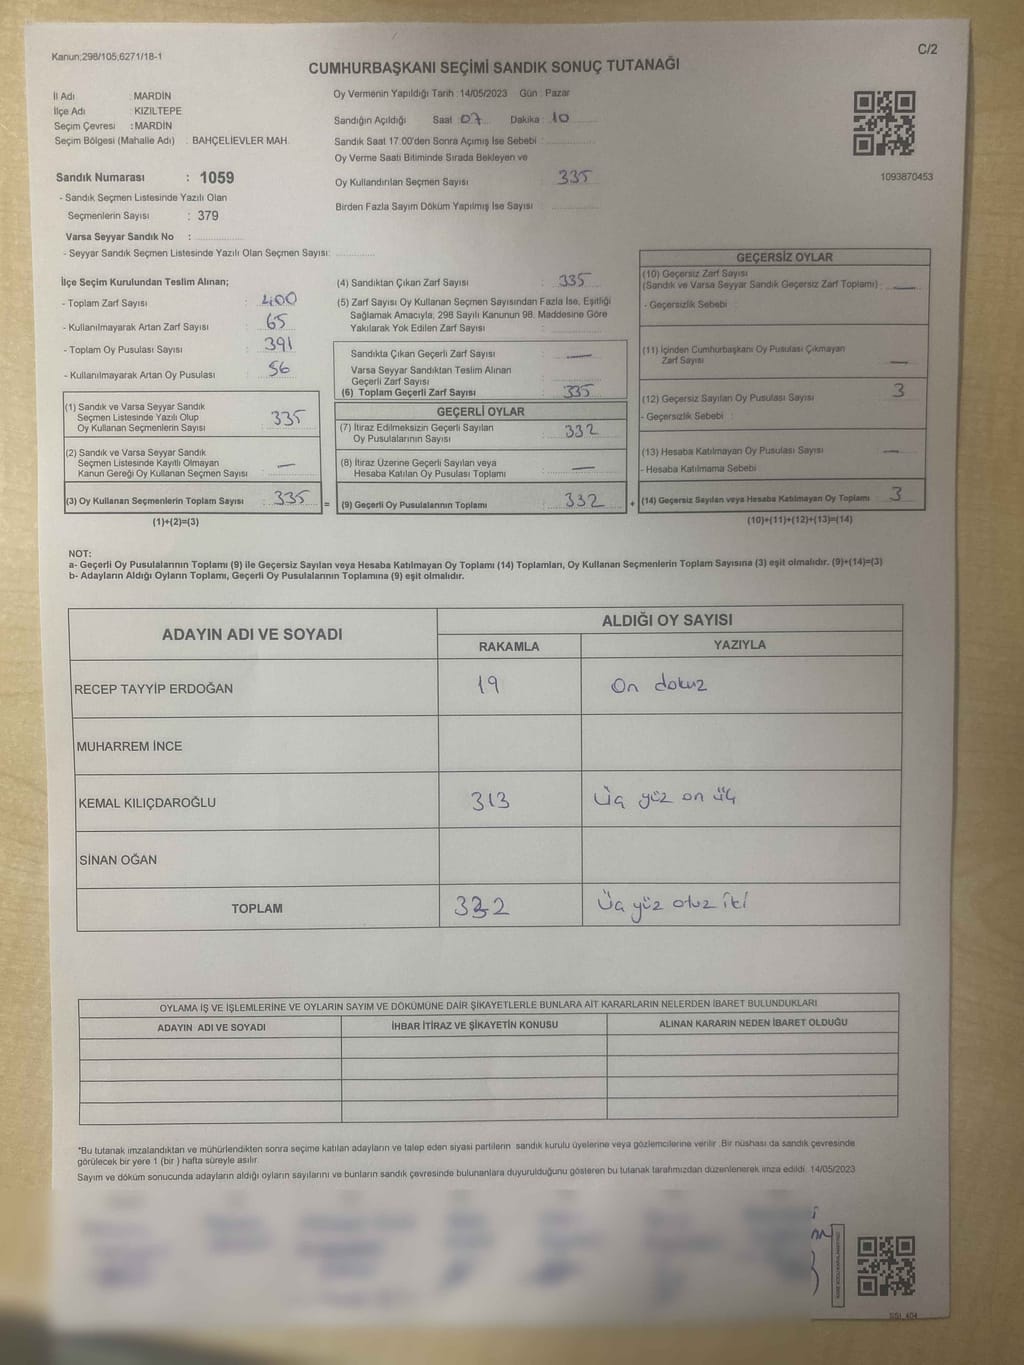 Kanun:298/105,6271/18-1
C/2
CUMHURBAŞKANI SEÇİMİ SANDIK SONUÇ TUTANAĞI
İl Adı : MARDİN
İlçe Adı : KIZILTEPE
Seçim Çevresi : MARDİN
Seçim Bölgesi (Mahalle Adı) : BAHÇELİEVLER MAH.
Sandık Numarası : 1059
- Sandık Seçmen Listesinde Yazılı Olan
Seçmenlerin Sayısı : 379
Varsa Seyyar Sandık No :
- Seyyar Sandık Seçmen Listesinde Yazılı Olan Seçmen Sayısı:
Oy Vermenin Yapıldığı Tarih : 14/05/2023 Gün : Pazar
Sandığın Açıldığı Saat : 07 Dakika : 10
Sandık Saat 17:00'den Sonra Açımış İse Sebebi :
Oy Verme Saati Bitiminde Sırada Bekleyen ve
Oy Kullandırılan Seçmen Sayısı : 335
Birden Fazla Sayım Döküm Yapılmış İse Sayısı :
1093870453
İlçe Seçim Kurulundan Teslim Alınan;
- Toplam Zarf Sayısı : 400
- Kullanılmayarak Artan Zarf Sayısı : 65
- Toplam Oy Pusulası Sayısı : 391
- Kullanılmayarak Artan Oy Pusulası : 56
(1) Sandık ve Varsa Seyyar Sandık
Seçmen Listesinde Yazılı Olup
Oy Kullanan Seçmenlerin Sayısı : 335
(2) Sandık ve Varsa Seyyar Sandık
Seçmen Listesinde Kayıtlı Olmayan
Kanun Gereği Oy Kullanan Seçmen Sayısı : —
(3) Oy Kullanan Seçmenlerin Toplam Sayısı : 335
(1)+(2)=(3)
(4) Sandıktan Çıkan Zarf Sayısı : 335
(5) Zarf Sayısı Oy Kullanan Seçmen Sayısından Fazla İse, Eşitliği
Sağlamak Amacıyla, 298 Sayılı Kanunun 98. Maddesine Göre
Yakılarak Yok Edilen Zarf Sayısı :
Sandıkta Çıkan Geçerli Zarf Sayısı : —
Varsa Seyyar Sandıktan Teslim Alınan
Geçerli Zarf Sayısı :
(6) Toplam Geçerli Zarf Sayısı : 335
GEÇERLİ OYLAR
(7) İtiraz Edilmeksizin Geçerli Sayılan
Oy Pusulalarının Sayısı : 332
(8) İtiraz Üzerine Geçerli Sayılan veya
Hesaba Katılan Oy Pusulası Toplamı : —
= (9) Geçerli Oy Pusulalarının Toplamı : 332 +
GEÇERSİZ OYLAR
(10) Geçersiz Zarf Sayısı
(Sandık ve Varsa Seyyar Sandık Geçersiz Zarf Toplamı) : —
- Geçersizlik Sebebi :
(11) İçinden Cumhurbaşkanı Oy Pusulası Çıkmayan
Zarf Sayısı : —
(12) Geçersiz Sayılan Oy Pusulası Sayısı : 3
- Geçersizlik Sebebi :
(13) Hesaba Katılmayan Oy Pusulası Sayısı : —
- Hesaba Katılmama Sebebi
(14) Geçersiz Sayılan veya Hesaba Katılmayan Oy Toplamı : 3
(10)+(11)+(12)+(13)=(14)
NOT:
a- Geçerli Oy Pusulalarının Toplamı (9) ile Geçersiz Sayılan veya Hesaba Katılmayan Oy Toplamı (14) Toplamları, Oy Kullanan Seçmenlerin Toplam Sayısına (3) eşit olmalıdır. (9)+(14)=(3)
b- Adayların Aldığı Oyların Toplamı, Geçerli Oy Pusulalarının Toplamına (9) eşit olmalıdır.
ADAYIN ADI VE SOYADI
ALDIĞI OY SAYISI
RAKAMLA YAZIYLA
RECEP TAYYİP ERDOĞAN 19 On dokuz
MUHARREM İNCE
KEMAL KILIÇDAROĞLU 313 Üç yüz on üç
SİNAN OĞAN
TOPLAM 332 Üç yüz otuz iki
OYLAMA İŞ VE İŞLEMLERİNE VE OYLARIN SAYIM VE DÖKÜMÜNE DAİR ŞİKAYETLERLE BUNLARA AİT KARARLARIN NELERDEN İBARET BULUNDUKLARI
ADAYIN ADI VE SOYADI İHBAR İTİRAZ VE ŞİKAYETİN KONUSU ALINAN KARARIN NEDEN İBARET OLDUĞU
*Bu tutanak imzalandıktan ve mühürlendikten sonra seçime katılan adayların ve talep eden siyasi partilerin sandık kurulu üyelerine veya gözlemcilerine verilir .Bir nüshası da sandık çevresinde
görülecek bir yere 1 (bir ) hafta süreyle asılır.
Sayım ve döküm sonucunda adayların aldığı oyların sayılarını ve bunların sandık çevresinde bulunanlara duyurulduğunu gösteren bu tutanak tarafımızdan düzenlenerek imza edildi. 14/05/2023